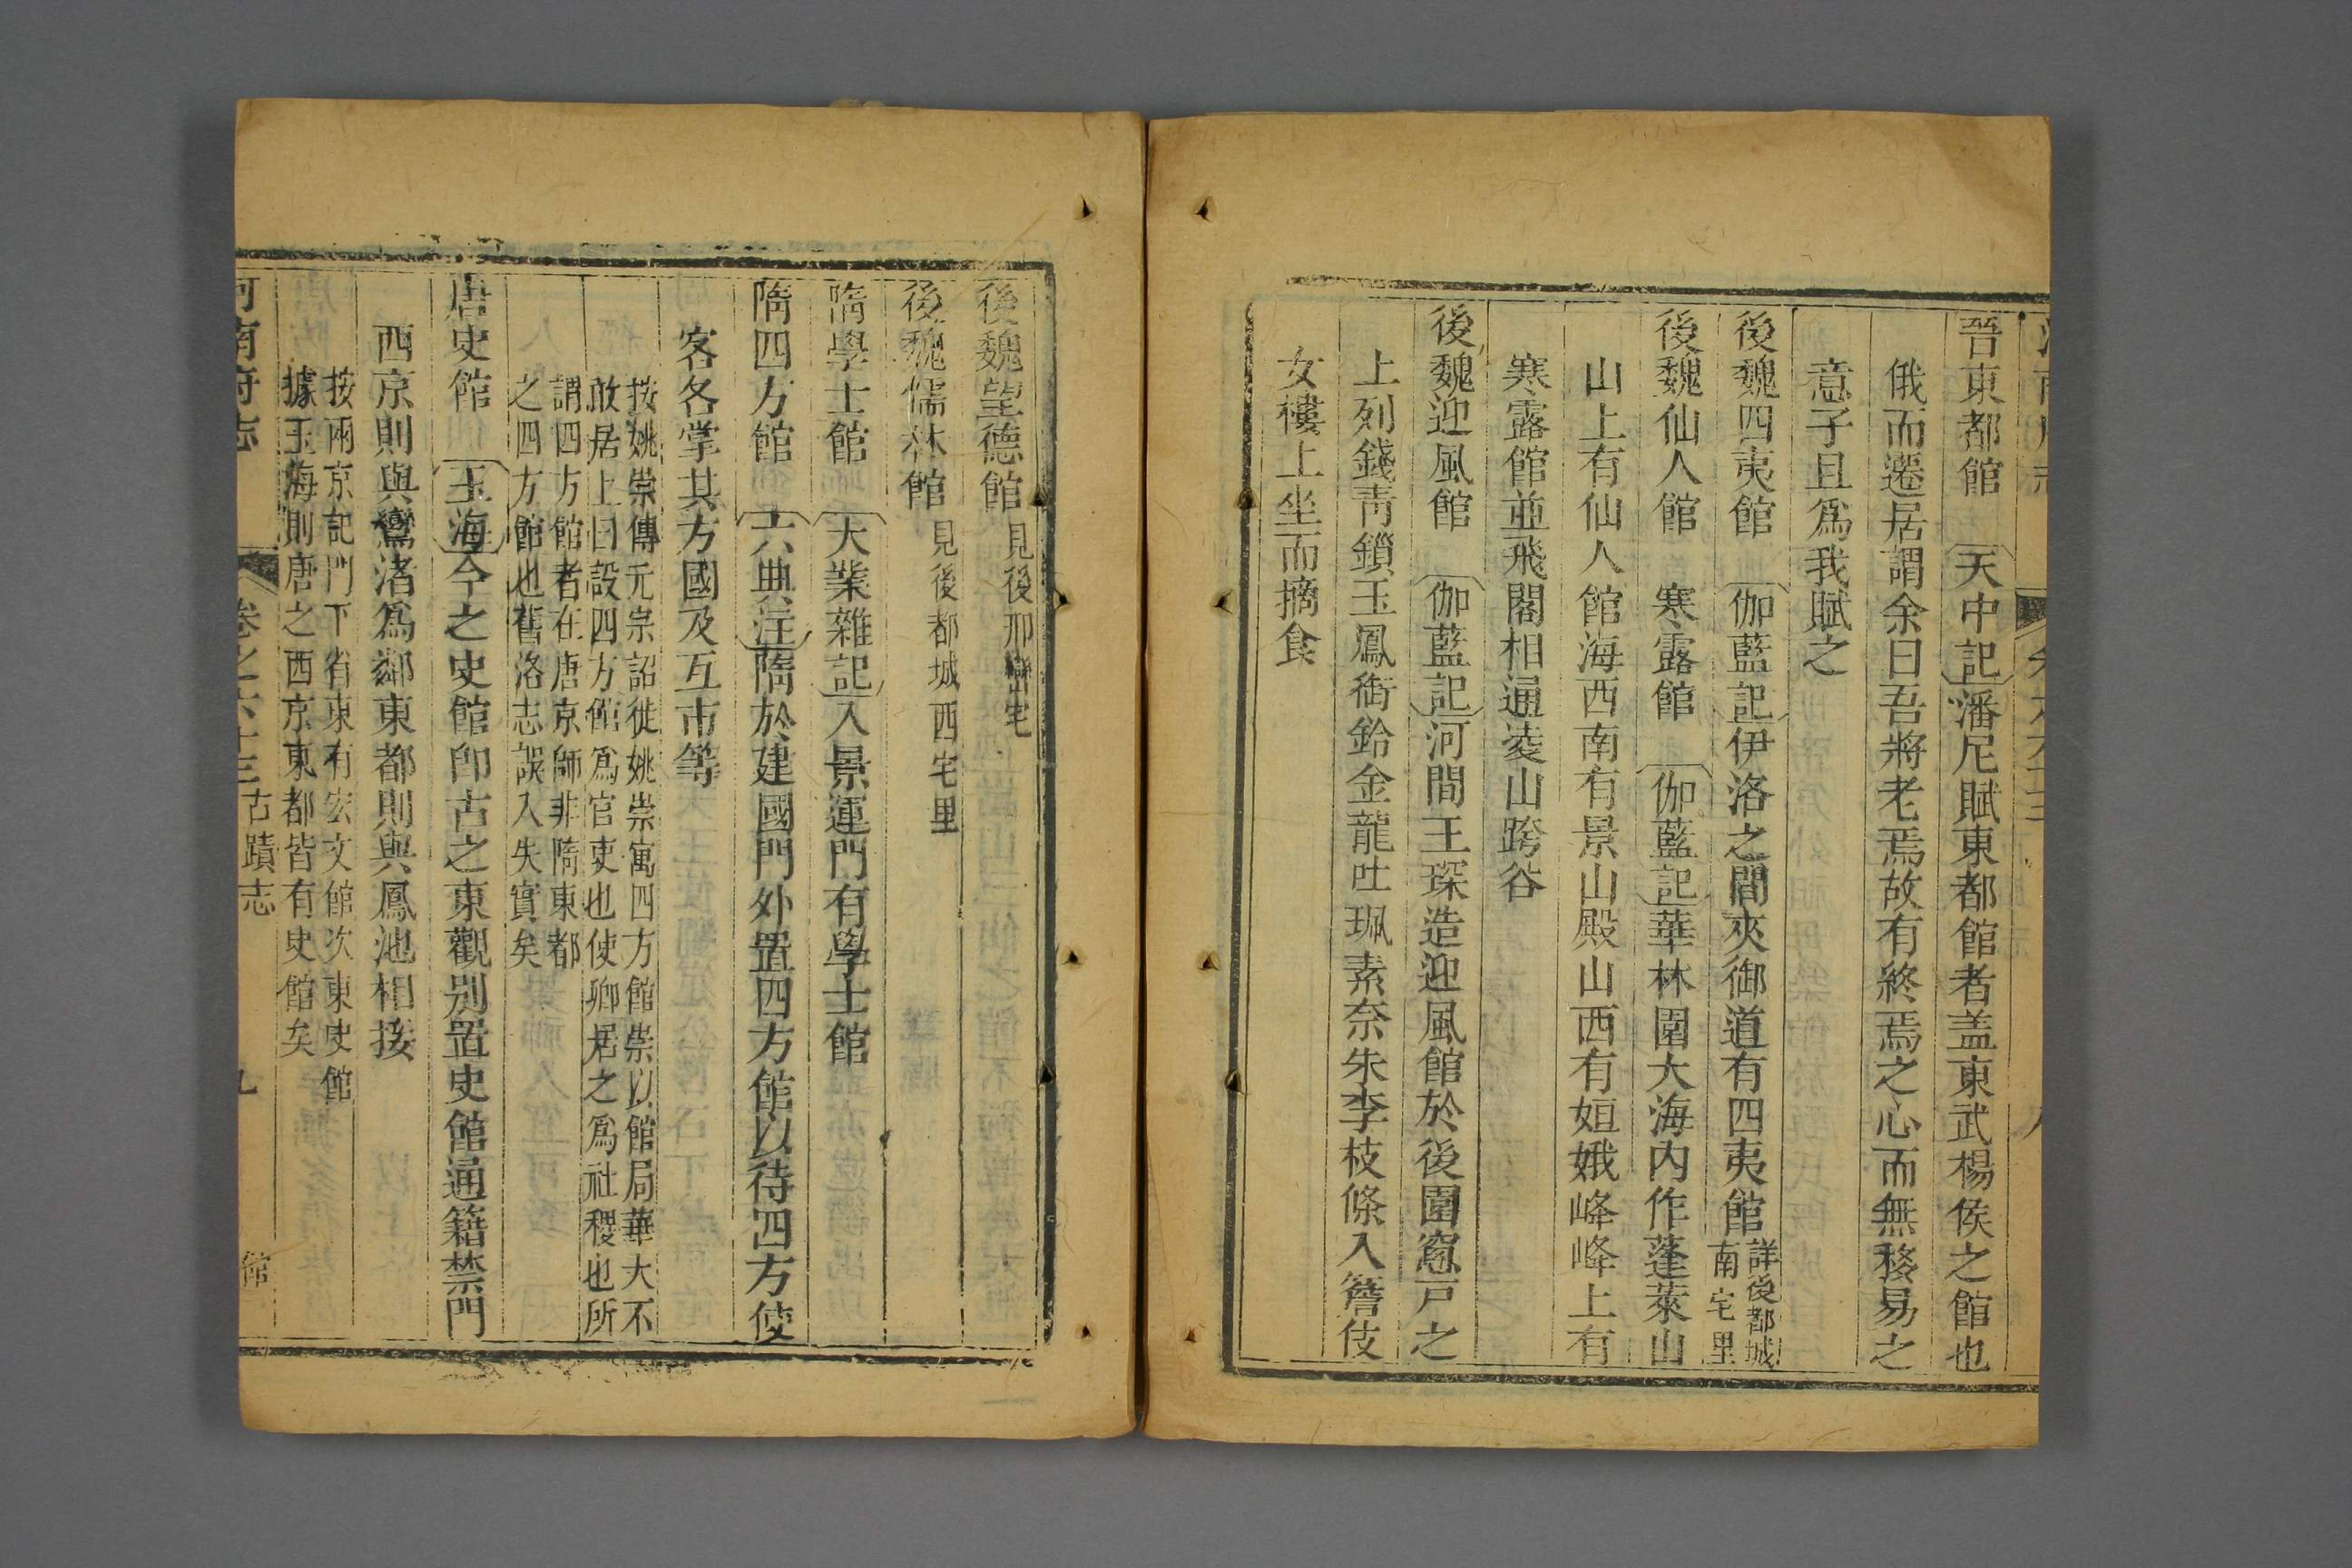 晉東都館 天中記潘尼賦東都館者盖東武楊侯之館也
俄而遷居謂余曰吾將老焉故有終焉之心而無移易之
意子且爲我賦之
後魏四夷館 伽藍記伊洛之間夾御道有四夷館詳後都城
南宅里
後魏仙人館 寒露館 伽藍記華林園大海內作蓬萊山
山上有仙人館海西南有景山殿山西有姮娥峰峰上有
寒露館並飛閣相通凌山跨谷
後魏迎風館 伽藍記河間王琛造迎風館於後園窻戸之
上列錢靑鎖玉鳳銜鈴金龍吐珮素奈朱李枝條入簷伎
女樓上坐而摘食
後魏望德館見後邢巒宅
後魏儒林館見後都城西宅里
隋學士館 大業雜記入景運門有學士館
隋四方館 六典注隋於建國門外置四方館以待四方使
客各掌其方國及互市等
按姚崇傳元宗詔徙姚崇寓四方館崇以館局華大不
敢居上曰設四方館爲官吏也使卿居之爲社稷也所
謂四方館者在唐京師非隋東都
之四方館也舊洛志誤入失實矣
唐史館 玉海今之史館卽古之東觀别置史館通籍禁門
西京則與鸞渚爲鄰東都則與鳳池相接
按兩京記門下省東有宏文館次東史館
據玉海則唐之西京東都皆有史館矣
河南府志 卷之六十三古蹟志 九 館